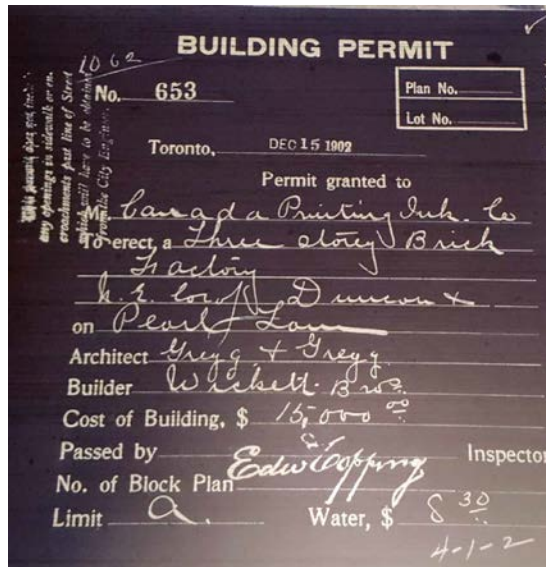 BUILDING PERMIT
1062
No. 653
Plan No.
Lot No.
This permit does not include
any openings in sidewalk or en-
croachments past line of Street
which will have to be obtained
from the City Engineer
Toronto, DEC 15 1902
Permit granted to
Mr Canada Printing Ink. Co
To erect a Three storey Brick
Factory
N. E. Cor of Duncan &
on Pearl
Architect Gregg & Gregg
Builder Wickett Bros.
Cost of Building, $ 15,000 00
Passed by Inspector
No. of Block Plan
Limit A. Water, $ 8 30
4-1-2